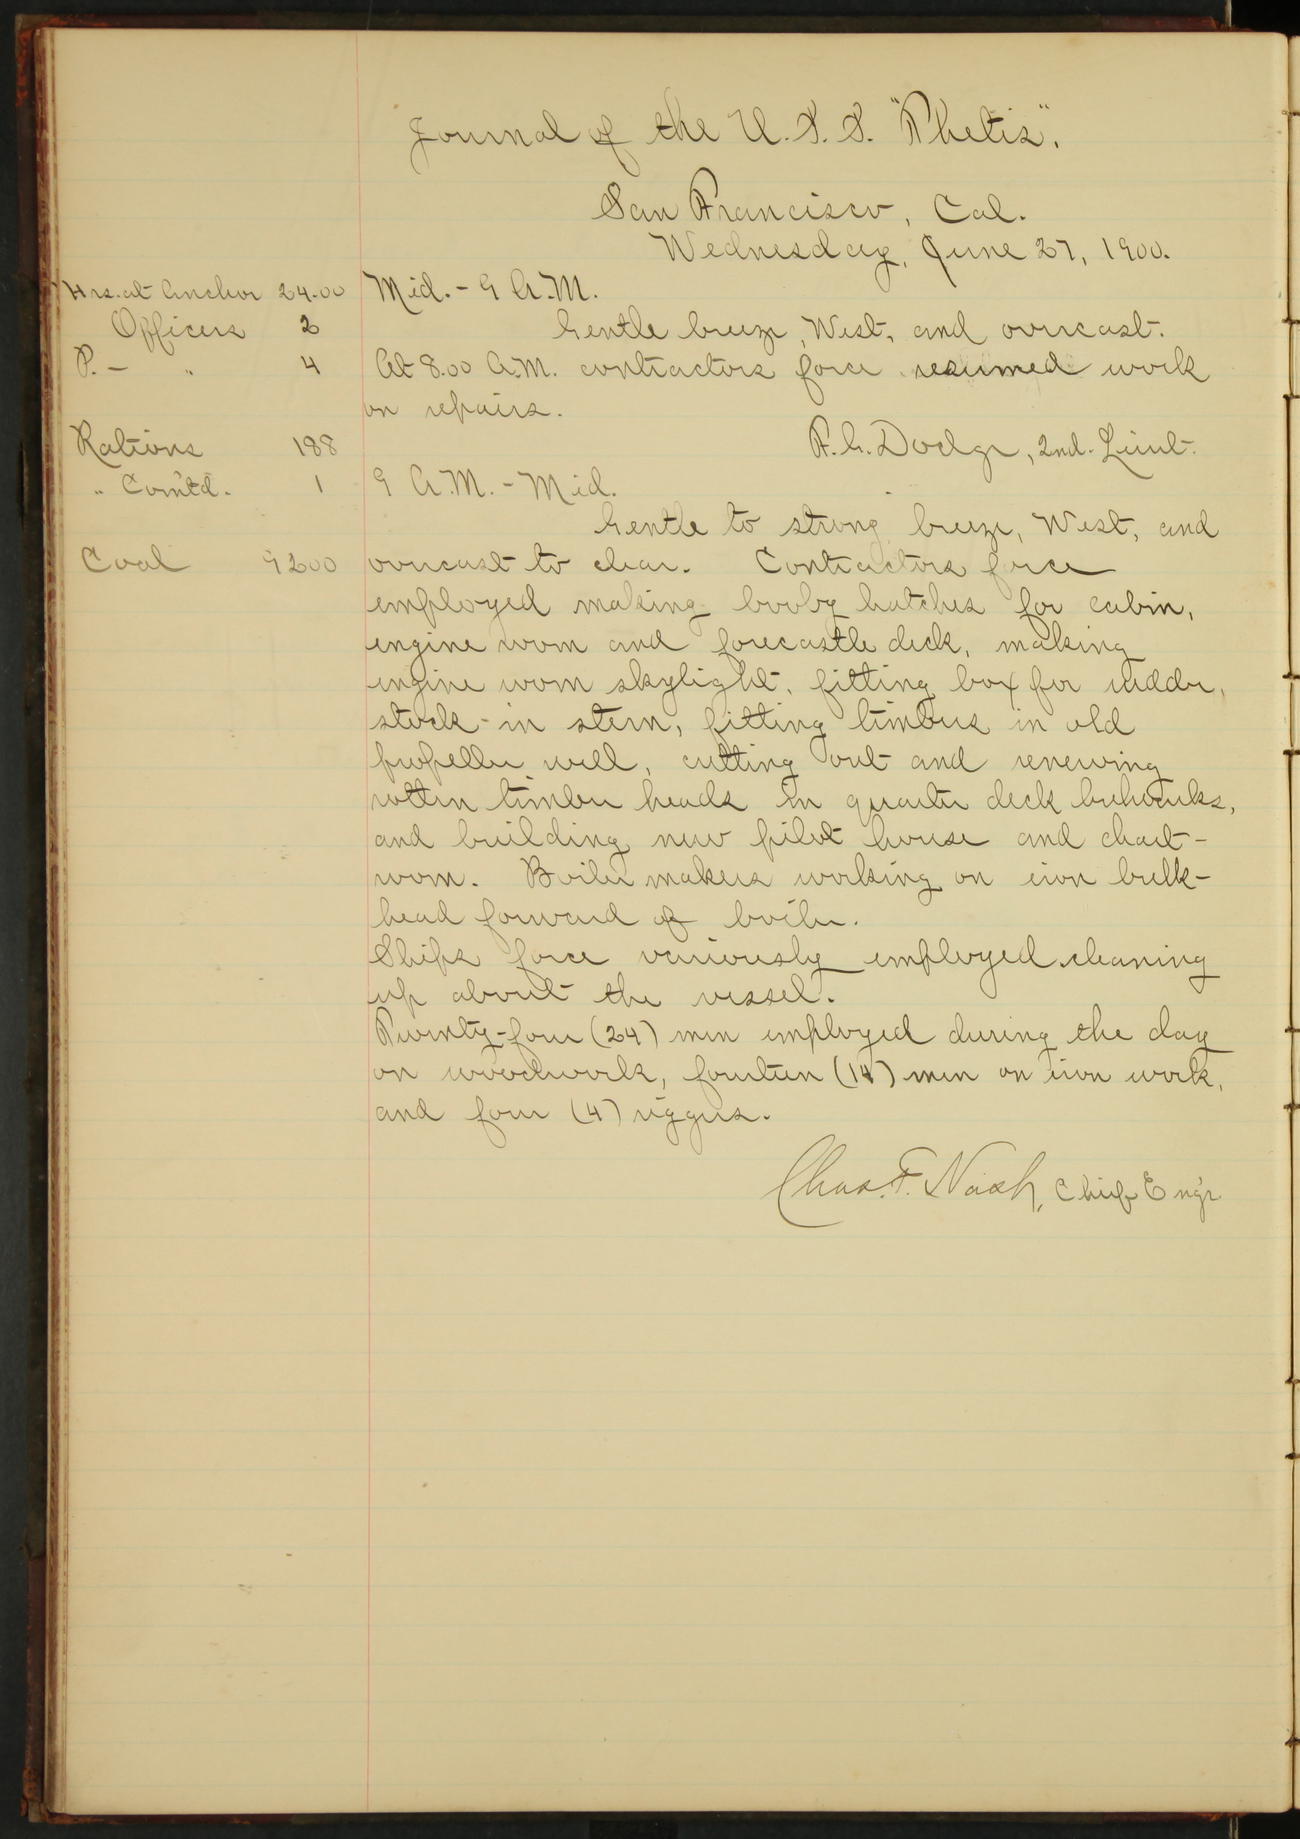 Journal of the U.S.S. "Thetis".
San Francisco, Cal.
Wednesday, June 27, 1900.
Hrs. at Anchor 24.00 Mid. - 9 A.M.
Officers 2 Gentle breeze, West, and overcast.
P. - " 4 At 8.00 A.M. contractors force resumed work
on repairs.
Rations 188 F.G. Dodge, 2nd. Lieut.
" Com'td. 1 9 A.M. - Mid.
Gentle to strong breeze, West, and
Coal 9200 overcast to clear. Contractors force
employed making booby hatches for cabin,
engine room and forecastle deck, making
engine room skylight, fitting box for rudder,
stock in stern, fitting timbers in old
propeller well, cutting out and renewing
rotten timber heads in quarter deck bulwarks,
and building new pilot house and chart-
room. Boiler makers working on iron bulk-
head forward of boiler.
Ships force variously employed cleaning
up about the vessel.
Twenty-four (24) men employed during the day
on woodwork, fourteen (14) men on iron work,
and four (4) riggers.
Chas. F. Nash, Chief Eng'r